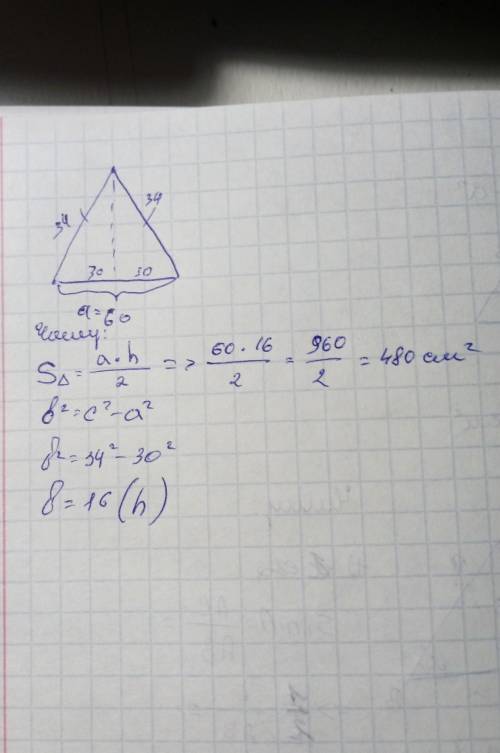 34 34
30 30
a = 60
Чому:
S△ = a·h/2 => 60·16/2 = 960/2 = 480 см²
b² = c² - a²
b² = 34² - 30²
b = 16 (h)